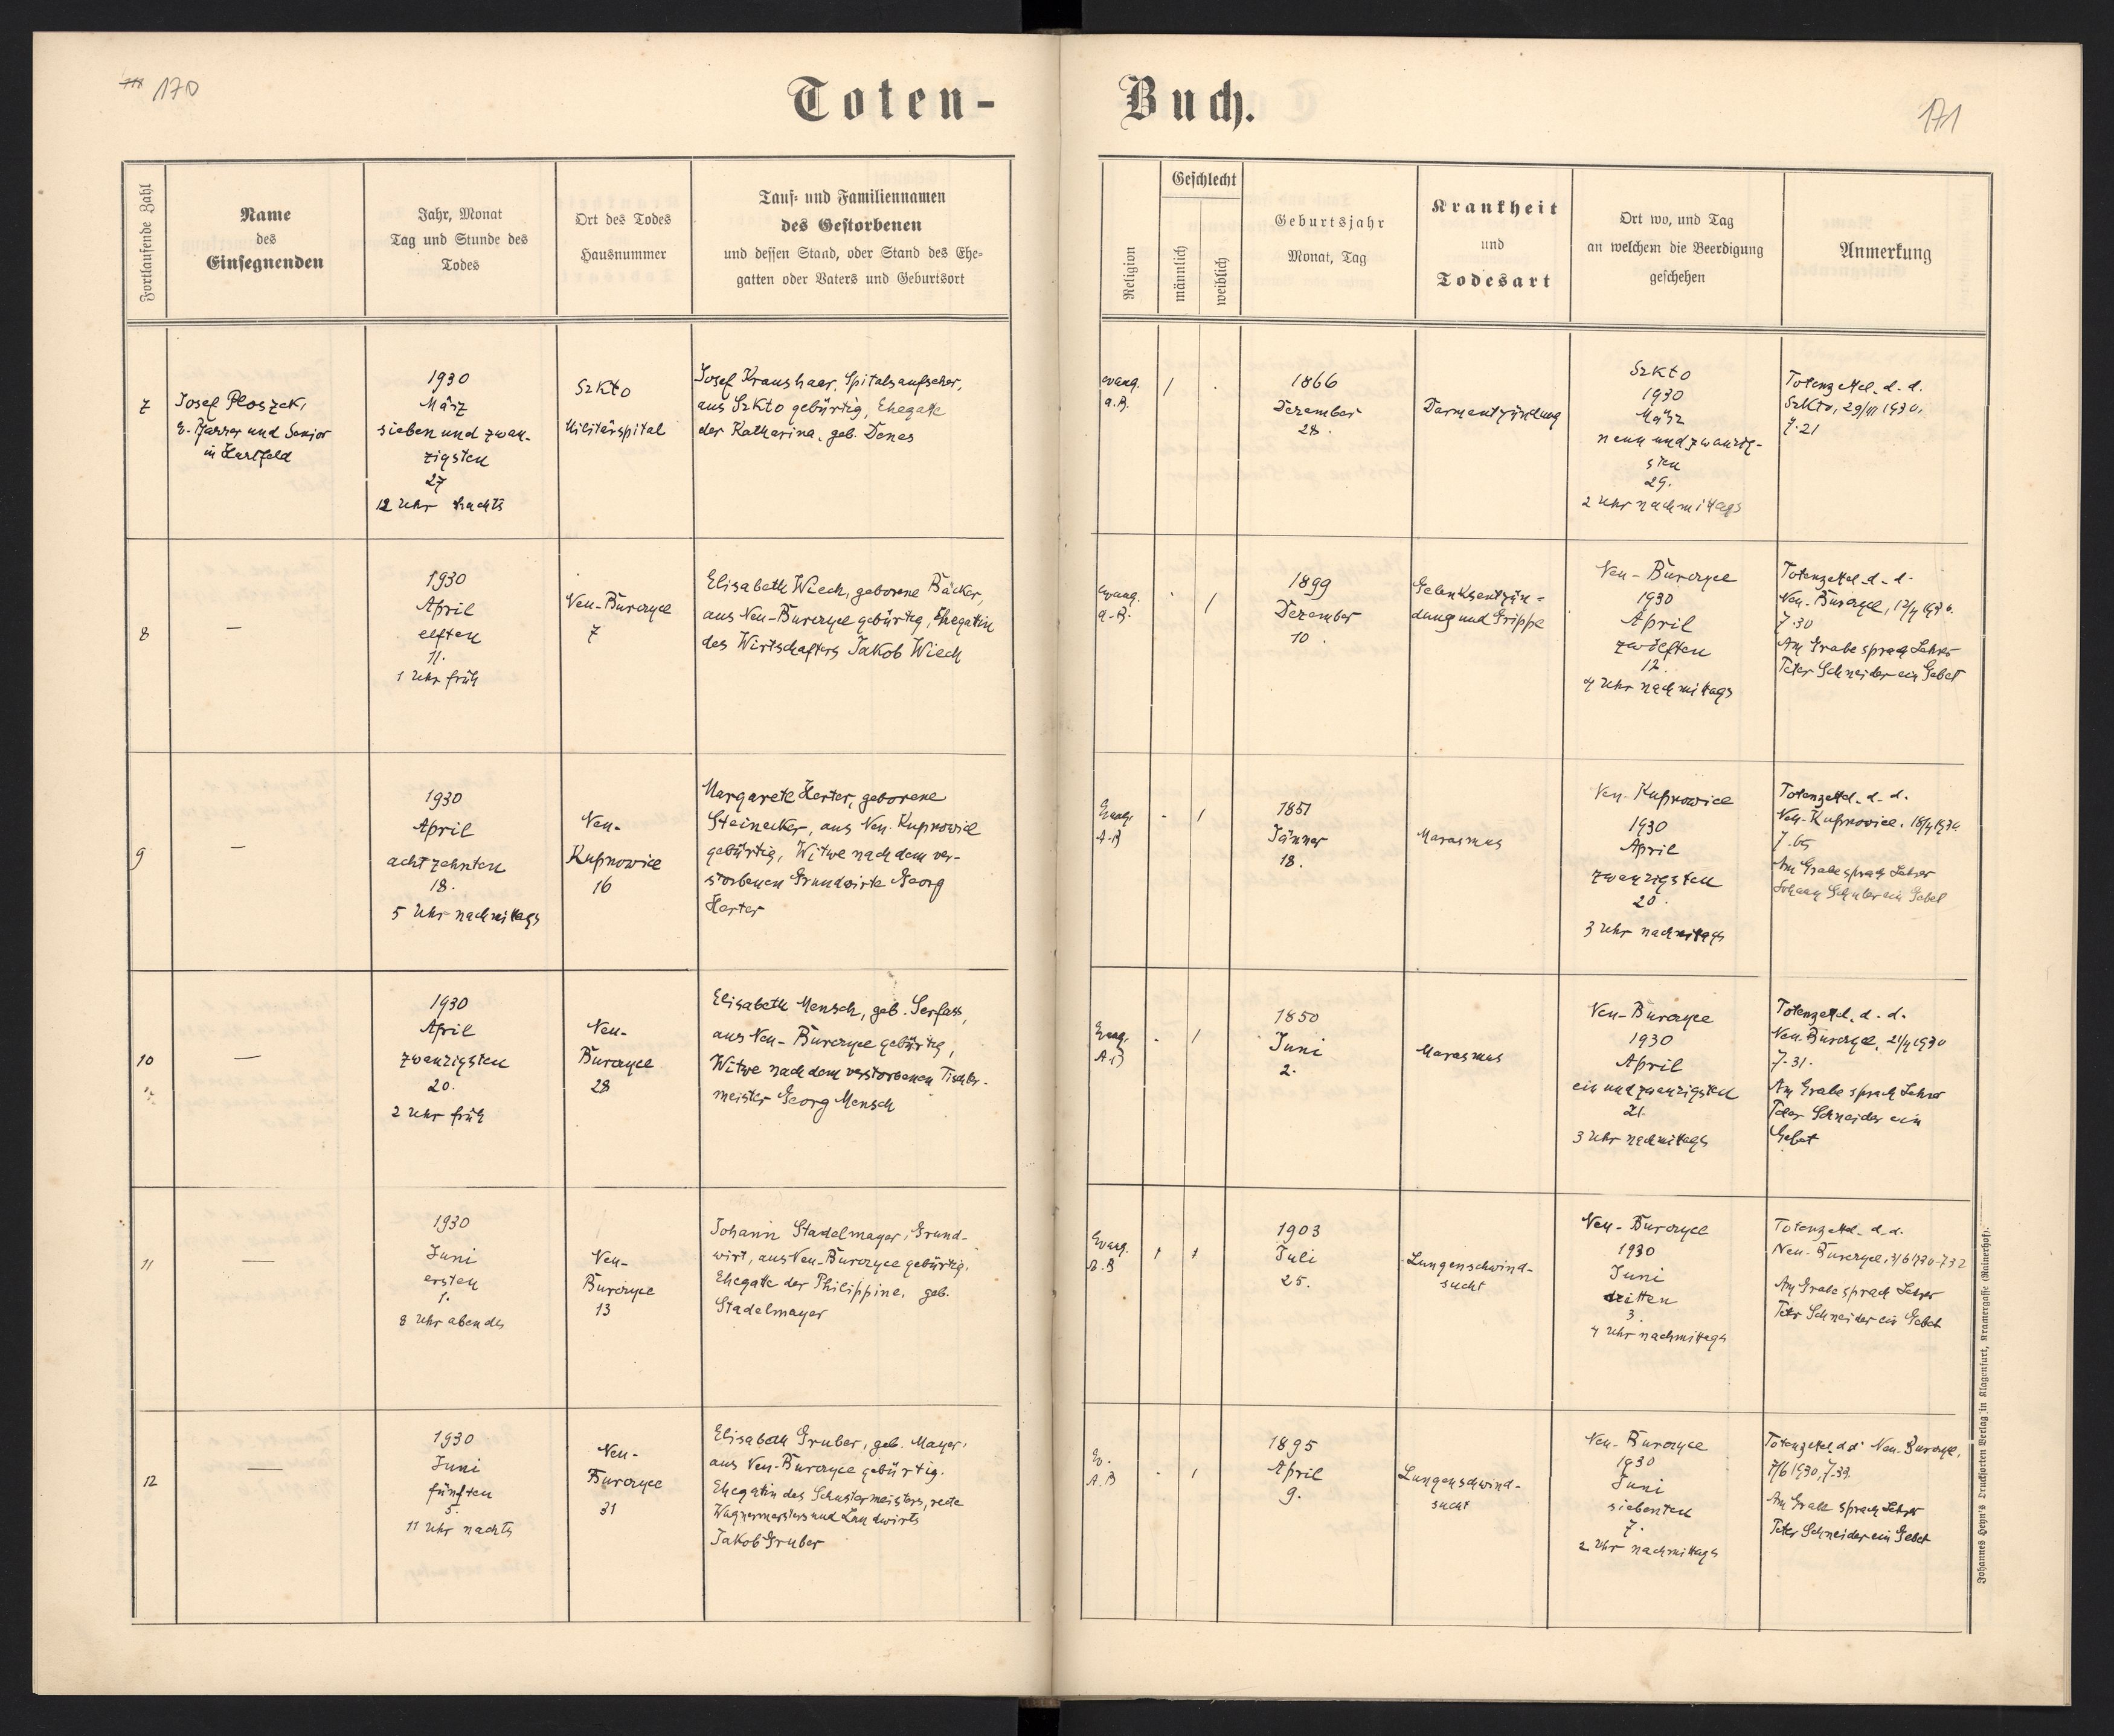 170
Toten-
Buch.
171
Fortlaufende Zahl
Name
des
Einsegnenden
Jahr, Monat
Tag und Stunde des
Todes
Ort des Todes
Hausnummer
Tauf- und Familiennamen
des Gestorbenen
und dessen Stand, oder Stand des Ehe-
gatten oder Vaters und Geburtsort
Religion
Geschlecht
männlich
weiblich
Geburtsjahr
Monat, Tag
Krankheit
und
Todesart
Ort wo, und Tag
an welchem die Beerdigung
geschehen
Anmerkung
7
Josef Ploszek,
e. Pfarrer und Senior
in Hartfeld
1930
März
sieben und zwan-
zigsten
27
12 Uhr nachts
Szkto
Militärspital
Josef Kraushaar, Spitalsaufseher,
aus Szkto gebürtig, Ehegatte
der Katharina, geb. Denes
evang.
a. B.
/
1866
Dezember
28.
Darmentzündung
Szkto
1930
März
neun und zwanzig-
sten
29.
2 Uhr nachmittags
Totenzettel d. d.
Szkto, 29/III 1930,
Z. 21
8
—
1930
April
elften
11.
1 Uhr früh
Neu-Burczyce
7
Elisabeth Wiech, geborene Bäcker,
aus Neu-Burczyce gebürtig, Ehegattin
des Wirtschafters Jakob Wiech
evang.
a. B.
/
1899
Dezember
10.
Gelenksentzün-
dung und Grippe
Neu-Burczyce
1930
April
zwölften
12.
4 Uhr nachmittags
Totenzettel d. d.
Neu-Burczyce, 12/4 1930.
Z. 30
Am Grabe sprach Lehrer
Peter Schneider ein Gebet
9
—
1930
April
achtzehnten
18.
5 Uhr nachmittags
Neu-
Kupnowice
16
Margarete Harter, geborene
Steinecker, aus Neu-Kupnowice
gebürtig, Witwe nach dem ver-
storbenen Grundwirte Georg
Harter
Evang.
A. B
/
1851
Jänner
18.
Marasmus
Neu-Kupnowice
1930
April
zwanzigsten
20.
3 Uhr nachmittags
Totenzettel d. d.
Neu-Kupnowice, 18/4 1930
Am Grabe sprach Lehrer
Johann Schuler ein Gebet
10
—
1930
April
zwanzigsten
20.
2 Uhr früh
Neu-
Burczyce
28
Elisabeth Mensch, geb. Serfass,
aus Neu-Burczyce gebürtig,
Witwe nach dem verstorbenen Tischler-
meister Georg Mensch
Evang.
A. B
/
1850
Juni
2.
Marasmus
Neu-Burczyce
1930
April
ein und zwanzigsten
21.
3 Uhr nachmittags
Totenzettel d. d.
Neu-Burczyce, 21/4 1930
Z. 31.
Am Grabe sprach Lehrer
Peter Schneider ein
Gebet
11
—
1930
Juni
ersten
1.
8 Uhr abends
Neu-
Burczyce
13
Johann Stadelmayer, Grund-
wirt, aus Neu-Burczyce gebürtig,
Ehegatte der Philippine, geb.
Stadelmayer
Evang.
A. B
/
1903
Juli
25.
Lungenschwind-
sucht
Neu-Burczyce
1930
Juni
dritten
3.
4 Uhr nachmittags
Totenzettel d. d.
Neu-Burczyce, 3/6 1930 Z 32
Am Grabe sprach Lehrer
Peter Schneider ein Gebet
12
—
1930
Juni
fünften
5.
11 Uhr nachts
Neu-
Burczyce
31
Elisabeth Gruber, geb. Mayer,
aus Neu-Burczyce gebürtig,
Ehegattin des Schustermeisters, recte
Wagnermeisters und Landwirts
Jakob Gruber
Ev.
A. B
/
1895
April
9.
Lungenschwind-
sucht
Neu-Burczyce
1930
Juni
siebenten
7.
2 Uhr nachmittags
Totenzettel d d Neu-Burczyce,
7/6 1930, Z. 33.
Am Grabe sprach Lehrer
Peter Schneider ein Gebet
Johannes Heyn's Drucksorten Verlag in Klagenfurt, Kramergasse (Rainerhof).